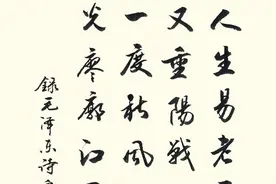 人生易老天
又重陽戰
一度秋風
光寥廓江
錄毛澤東詩